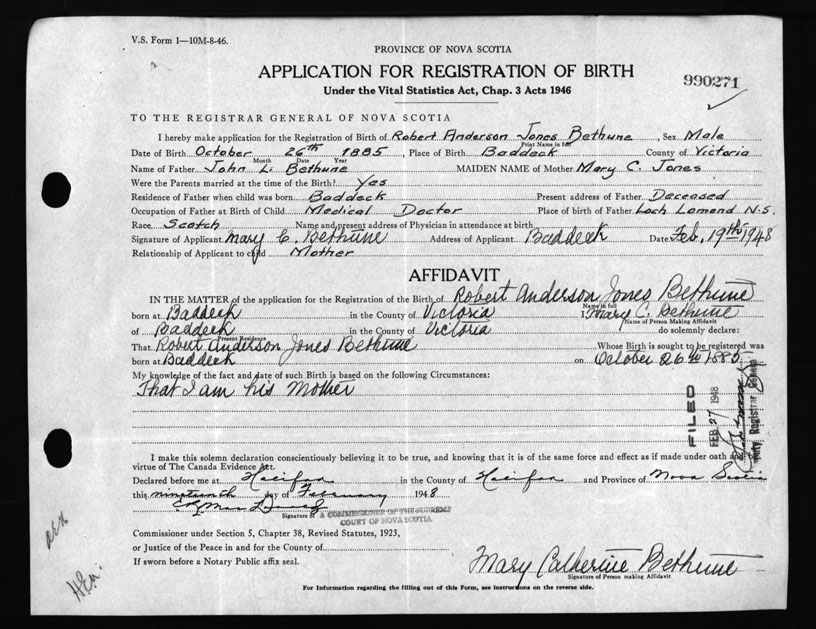 V.S. Form 1—10M-8-46.
PROVINCE OF NOVA SCOTIA
APPLICATION FOR REGISTRATION OF BIRTH
990271
Under the Vital Statistics Act, Chap. 3 Acts 1946
TO THE REGISTRAR GENERAL OF NOVA SCOTIA
I hereby make application for the Registration of Birth of Robert Anderson Jones Bethune, Sex Male
Print Name in full
Date of Birth October 26th 1885, Place of Birth Baddeck County of Victoria
Month Date Year
Name of Father John L. Bethune MAIDEN NAME of Mother Mary C. Jones
Were the Parents married at the time of the Birth? Yes
Residence of Father when child was born Baddeck Present address of Father Deceased
Occupation of Father at Birth of Child Medical Doctor Place of birth of Father Loch Lomond N.S.
Race Scotch Name and present address of Physician in attendance at birth
Signature of Applicant Mary C. Bethune Address of Applicant Baddeck Date Feb. 19th 1948
Relationship of Applicant to child Mother
AFFIDAVIT
IN THE MATTER of the application for the Registration of the Birth of Robert Anderson Jones Bethune
Name in full
born at Baddeck in the County of Victoria I Mary C. Bethune
Name of Person Making Affidavit
of Baddeck in the County of Victoria do solemnly declare:
Present Residence
That Robert Anderson Jones Bethune Whose Birth is sought to be registered was
born at Baddeck on October 26th 1885
My knowledge of the fact and date of such Birth is based on the following Circumstances:
That I am his Mother
FILED
FEB 27 1948
Registrar General
I make this solemn declaration conscientiously believing it to be true, and knowing that it is of the same force and effect as if made under oath and by
virtue of The Canada Evidence Act.
Declared before me at Halifax in the County of Halifax and Province of Nova Scotia
this nineteenth day of February 1948
Signature of A COMMISSIONER OF THE SUPREME
COURT OF NOVA SCOTIA
Commissioner under Section 5, Chapter 38, Revised Statutes, 1923,
or Justice of the Peace in and for the County of
If sworn before a Notary Public affix seal.
Mary Catherine Bethune
Signature of Person making Affidavit
For Information regarding the filling out of this Form, see instructions on the reverse side.